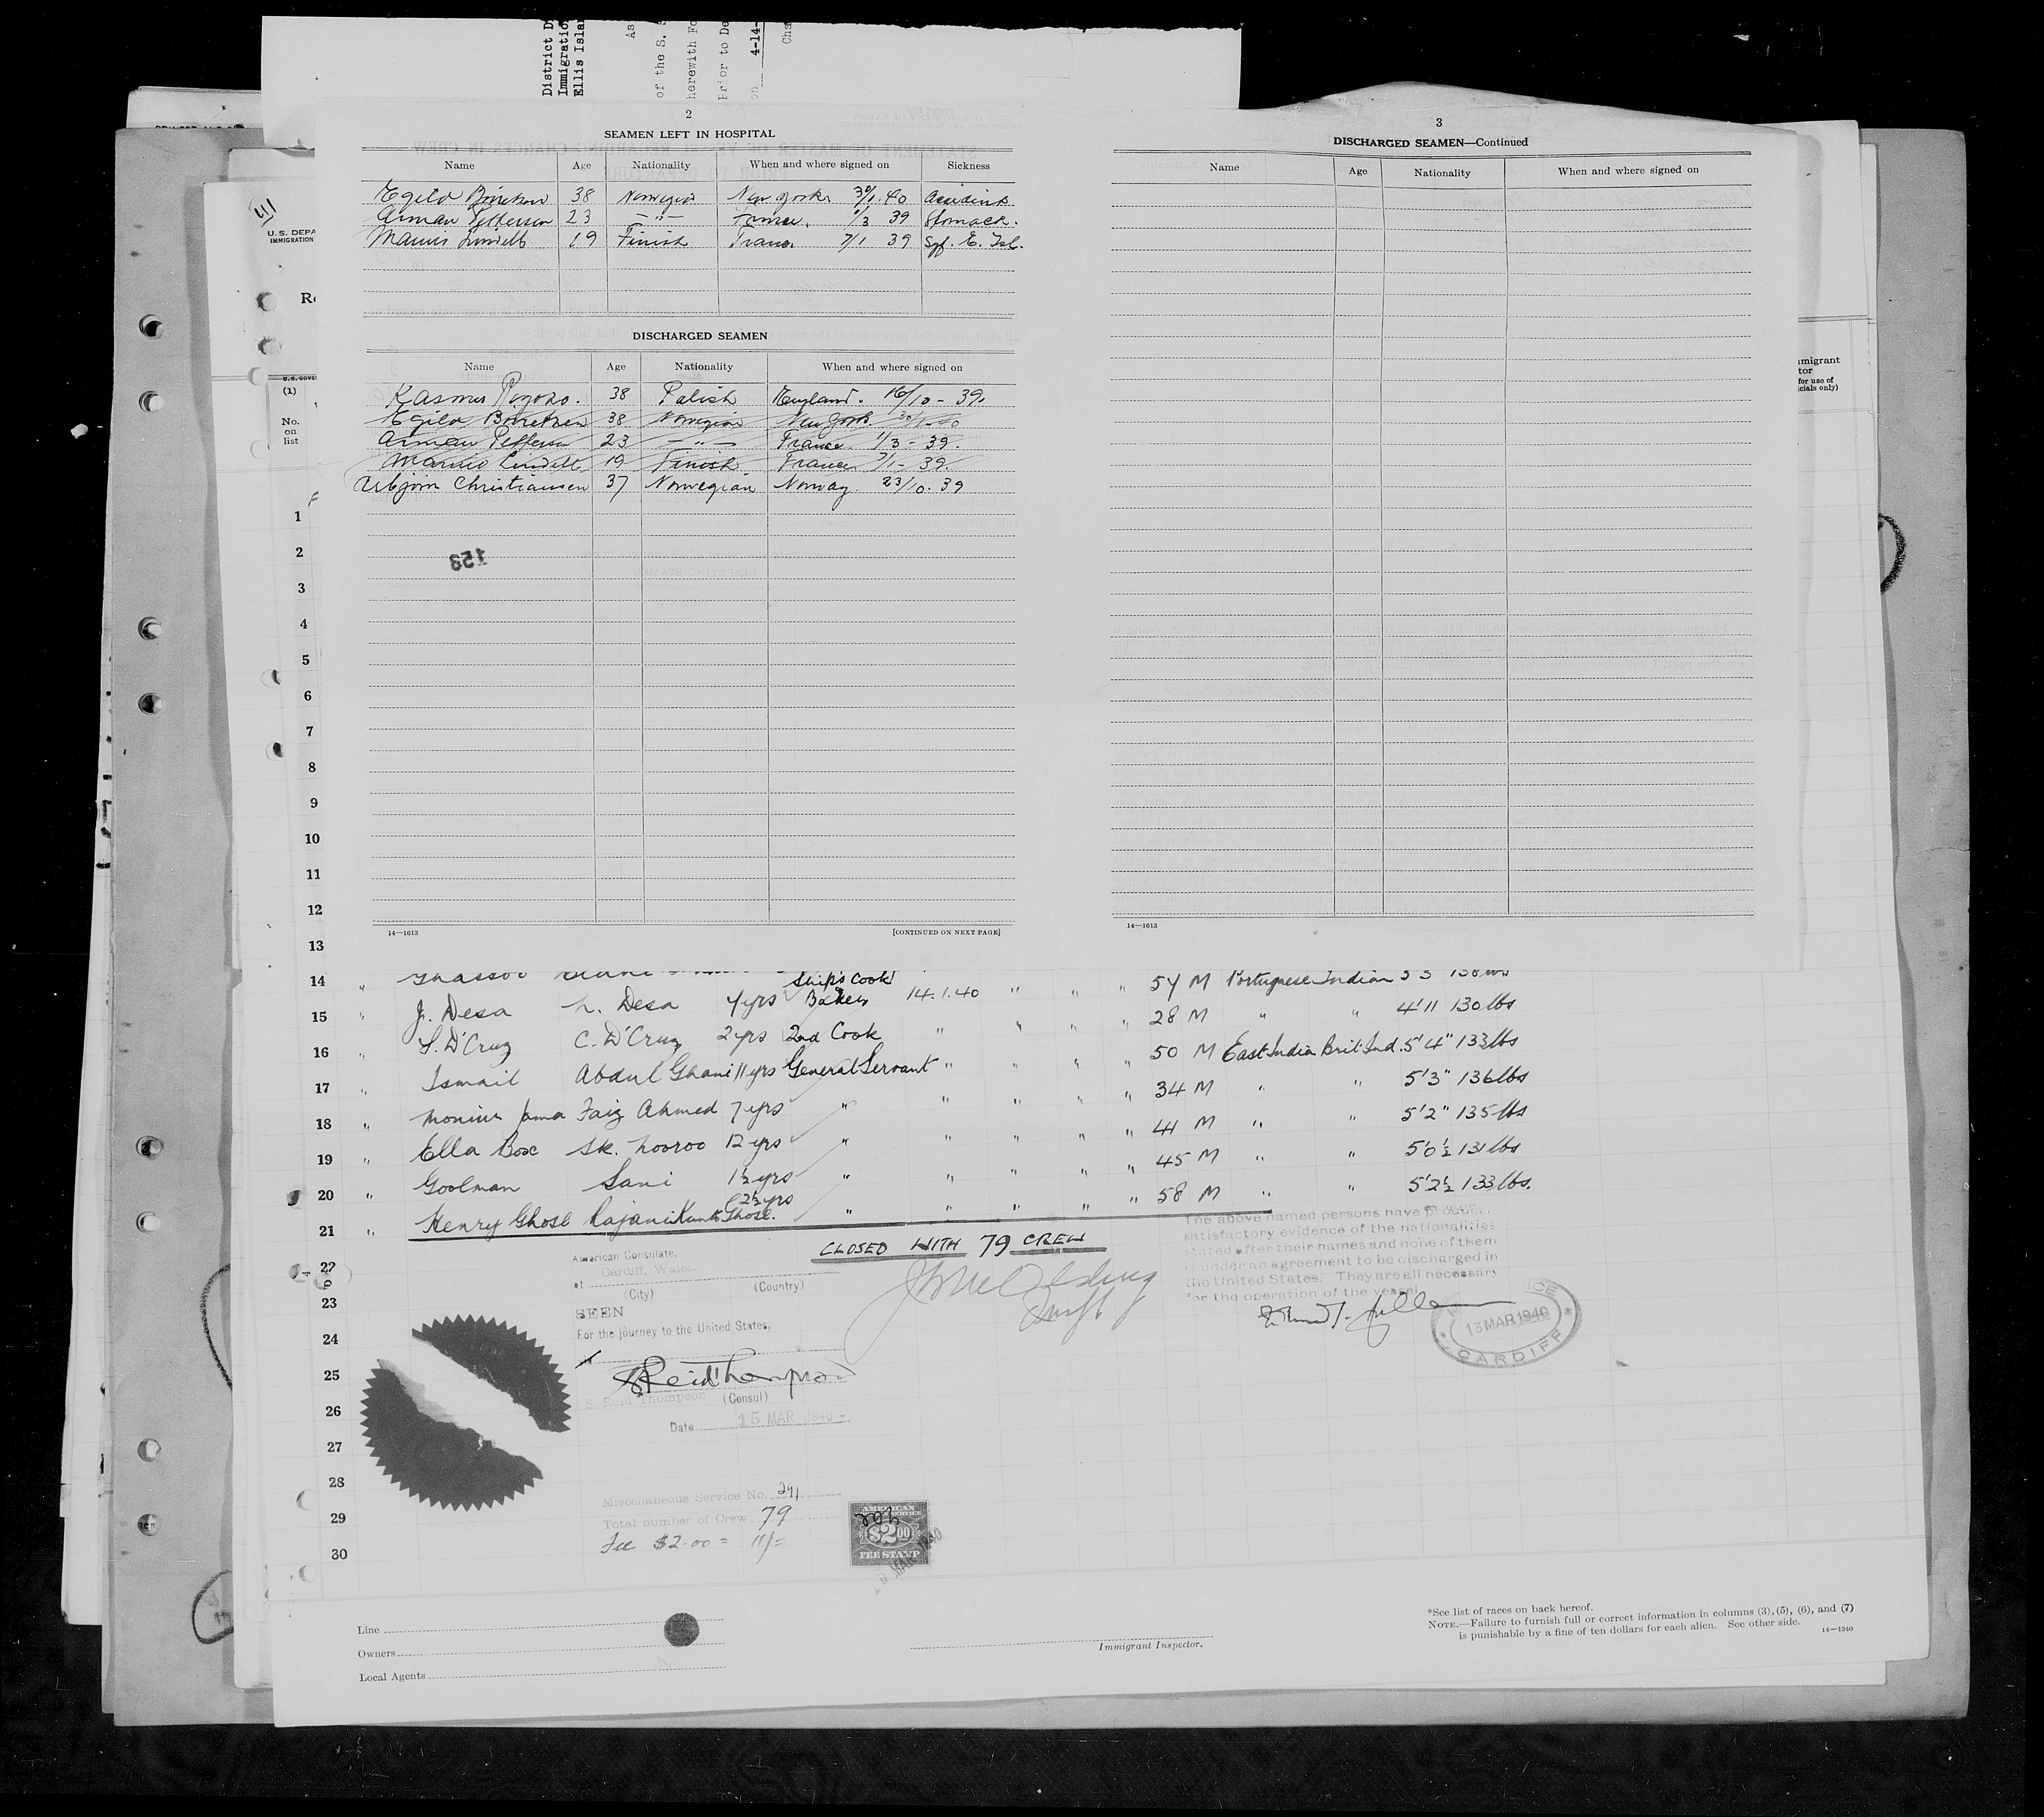 District D
Immigratio
Ellis Isla
As
of the S. S
herewith Fo
Prior to De
on 4-14-
Cha
2
SEAMEN LEFT IN HOSPITAL
Name Age Nationality When and where signed on Sickness
Egild 38 New York 30/1.40
Arman 23 —"— 1/3 39 Stomach.
19 Finish France 7/1 39
DISCHARGED SEAMEN
Name Age Nationality When and where signed on
Kasmer 38 Polish England. 16/10 - 39.
Egild 38 New York. 30/1-40
Arman 23 —"— France. 1/3 - 39.
19 Finish France 7/1 - 39.
Christiansen 37 Norwegian Norway. 23/10. 39
153
14—1613 [CONTINUED ON NEXT PAGE]
3
DISCHARGED SEAMEN—Continued
Name Age Nationality When and where signed on
14—1613
U.S. DEPA
IMMIGRATION
Re
U.S. GOVE
(1)
No.
on
list
mmigrant
tor
for use of
cials only)
1
2
3
4
5
6
7
8
9
10
11
12
13
14 " Ship's Cook " " " 54 M Portuguese Indian 5'5
15 " J. Desa L. Desa 4yrs Baker 14.1.40 " " " 28 M " " 4'11 130 lbs
16 " S. D'Cruz C. D'Cruz 2yrs 2nd Cook " " " " 50 M East India Brit: Ind. 5'4" 133lbs
17 " Ismail Abdul Ghani 11yrs General Servant " " " " 34 M " " 5'3" 136lbs
18 " Faiz Ahmed 7yrs " " " " " 41 M " " 5'2" 135lbs
19 " Ella Box Sk. Nooroo 12 yrs " " " " " 45 M " " 5'0½ 131lbs
20 " Goolman Sani 1½yrs " " " " " 58 M " " 5'2½ 133lbs.
21 " Henry Ghose Rajani Kanta Ghose. 2½yrs " " " "
CLOSED WITH 79 CREW
The above named persons have produced
satisfactory evidence of the nationalities
stated after their names and none of them
is under an agreement to be discharged in
the United States. They are all necessary
for the operation of the vessel
13 MAR 1940
CARDIFF
American Consulate.
Cardiff, Wales.
at
(City) (Country)
SEEN
For the journey to the United States,
S Reid Thompson
S. Reid Thompson (Consul)
Date 15 MAR 1940 -
22
23
24
25
26
27
28
29
30
Miscellaneous Service No. 291
Total number of Crew 79
Fee $2.00 = 11/=
AMERICAN
SERVICE
$2.00
FEE STAMP
Line
Owners
Local Agents
Immigrant Inspector.
*See list of races on back hereof.
NOTE.—Failure to furnish full or correct information in columns (3), (5), (6), and (7)
is punishable by a fine of ten dollars for each alien. See other side.
14—1240